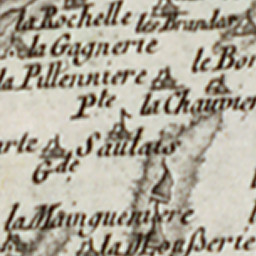 la Rochelle les Brandar
la Gagnerie
la Pillenniere le Bor
Pte la Chauvier
Saulais
Gde
la Mainguemere
la Moußerie